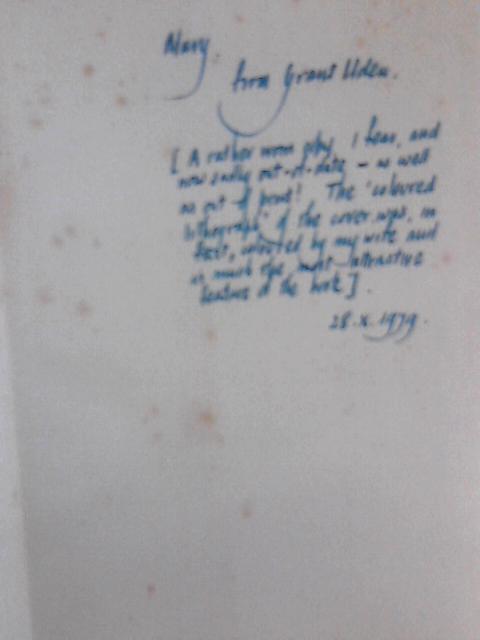 Mary.
from Grant Uden.
[A rather worn copy, I fear, and
now sadly out-of-date – as well
as out of print! The 'coloured
lithograph' of the cover was, in
fact, coloured by my wife and
is much the most attractive
feature of the book].
28.x.1979.